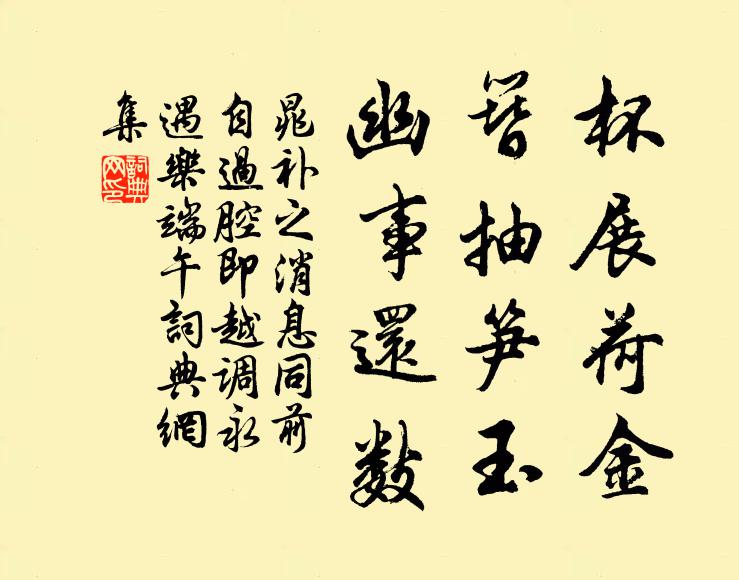 杯展荷金
簪抽笋玉
幽事還數
晁补之消息同前
自過腔即越调永
遇樂端午詞典網
集
詞典网印